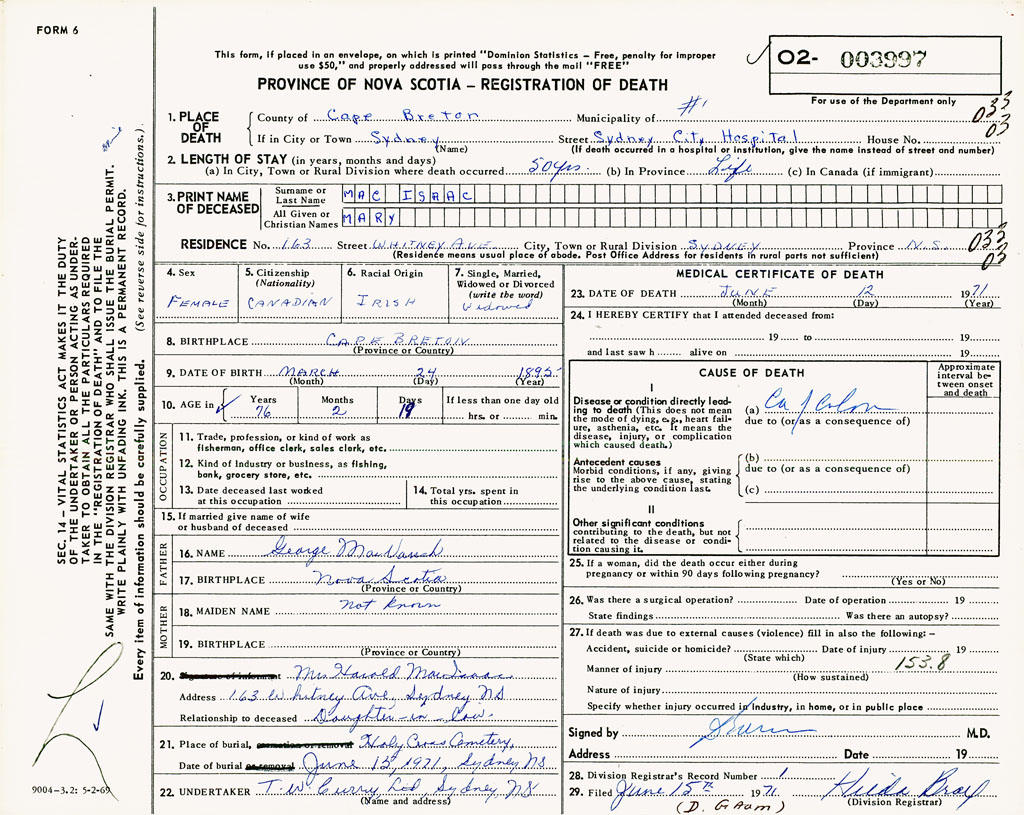 FORM 6
This form, if placed in an envelope, on which is printed "Dominion Statistics – Free, penalty for improper
use $50," and properly addressed will pass through the mail "FREE"
PROVINCE OF NOVA SCOTIA – REGISTRATION OF DEATH
02- 003997
For use of the Department only
1. PLACE OF DEATH
County of Cape Breton Municipality of #1 033
03
If in City or Town Sydney Street Sydney City Hospital House No.
(Name) (If death occurred in a hospital or institution, give the name instead of street and number)
2. LENGTH OF STAY (in years, months and days)
(a) In City, Town or Rural Division where death occurred 50 yrs. (b) In Province Life (c) In Canada (if immigrant)
3. PRINT NAME OF DECEASED
Surname or Last Name MAC ISAAC
All Given or Christian Names MARY
RESIDENCE No. 163 Street WHITNEY AVE City, Town or Rural Division SYDNEY Province N.S. 033
03
(Residence means usual place of abode. Post Office Address for residents in rural parts not sufficient)
4. Sex
FEMALE
5. Citizenship
(Nationality)
CANADIAN
6. Racial Origin
IRISH
7. Single, Married,
Widowed or Divorced
(write the word)
Widowed
8. BIRTHPLACE CAPE BRETON
(Province or Country)
9. DATE OF BIRTH MARCH 24 1895
(Month) (Day) (Year)
10. AGE in Years Months Days If less than one day old
76 2 19 hrs. or min.
OCCUPATION
11. Trade, profession, or kind of work as
fisherman, office clerk, sales clerk, etc.
12. Kind of Industry or business, as fishing,
bank, grocery store, etc.
13. Date deceased last worked
at this occupation
14. Total yrs. spent in
this occupation
15. If married give name of wife
or husband of deceased
FATHER
16. NAME George
17. BIRTHPLACE Nova Scotia
(Province or Country)
MOTHER
18. MAIDEN NAME Not Known
19. BIRTHPLACE
(Province or Country)
20. Signature of informant Mrs Harold MacIsaac
Address 163 Whitney Ave, Sydney NS
Relationship to deceased Daughter-in-Law
21. Place of burial, cremation or removal Holy Cross Cemetery,
Date of burial or removal June 15, 1971, Sydney NS
22. UNDERTAKER T. W Curry, Ltd, Sydney, NS
(Name and address)
MEDICAL CERTIFICATE OF DEATH
23. DATE OF DEATH JUNE 12 1971
(Month) (Day) (Year)
24. I HEREBY CERTIFY that I attended deceased from:
19 to 19
and last saw h alive on 19
CAUSE OF DEATH
Approximate
interval be-
tween onset
and death
I
Disease or condition directly lead-
ing to death (This does not mean
the mode of dying, e.g., heart fail-
ure, asthenia, etc. It means the
disease, injury, or complication
which caused death.)
(a) Ca of Colon
due to (or as a consequence of)
Antecedent causes
Morbid conditions, if any, giving
rise to the above cause, stating
the underlying condition last.
(b)
due to (or as a consequence of)
(c)
II
Other significant conditions
contributing to the death, but not
related to the disease or condi-
tion causing it.
25. If a woman, did the death occur either during
pregnancy or within 90 days following pregnancy?
(Yes or No)
26. Was there a surgical operation? Date of operation 19
State findings Was there an autopsy?
27. If death was due to external causes (violence) fill in also the following: –
Accident, suicide or homicide? Date of injury 19
(State which)
Manner of injury 153.8
(How sustained)
Nature of injury
Specify whether injury occurred in industry, in home, or in public place
Signed by M.D.
Address Date 19
28. Division Registrar's Record Number 1
29. Filed June 15th 1971 Hilda
(Division Registrar)
SEC. 14 – VITAL STATISTICS ACT MAKES IT THE DUTY
OF THE UNDERTAKER OR PERSON ACTING AS UNDER-
TAKER TO OBTAIN ALL THE PARTICULARS REQUIRED
IN THE "REGISTRATION OF DEATH" AND TO FILE THE
SAME WITH THE DIVISION REGISTRAR WHO SHALL ISSUE THE BURIAL PERMIT.
WRITE PLAINLY WITH UNFADING INK. THIS IS A PERMANENT RECORD.
Every item of information should be carefully supplied. (See reverse side for instructions.)
9004-3.2: 5-2-69